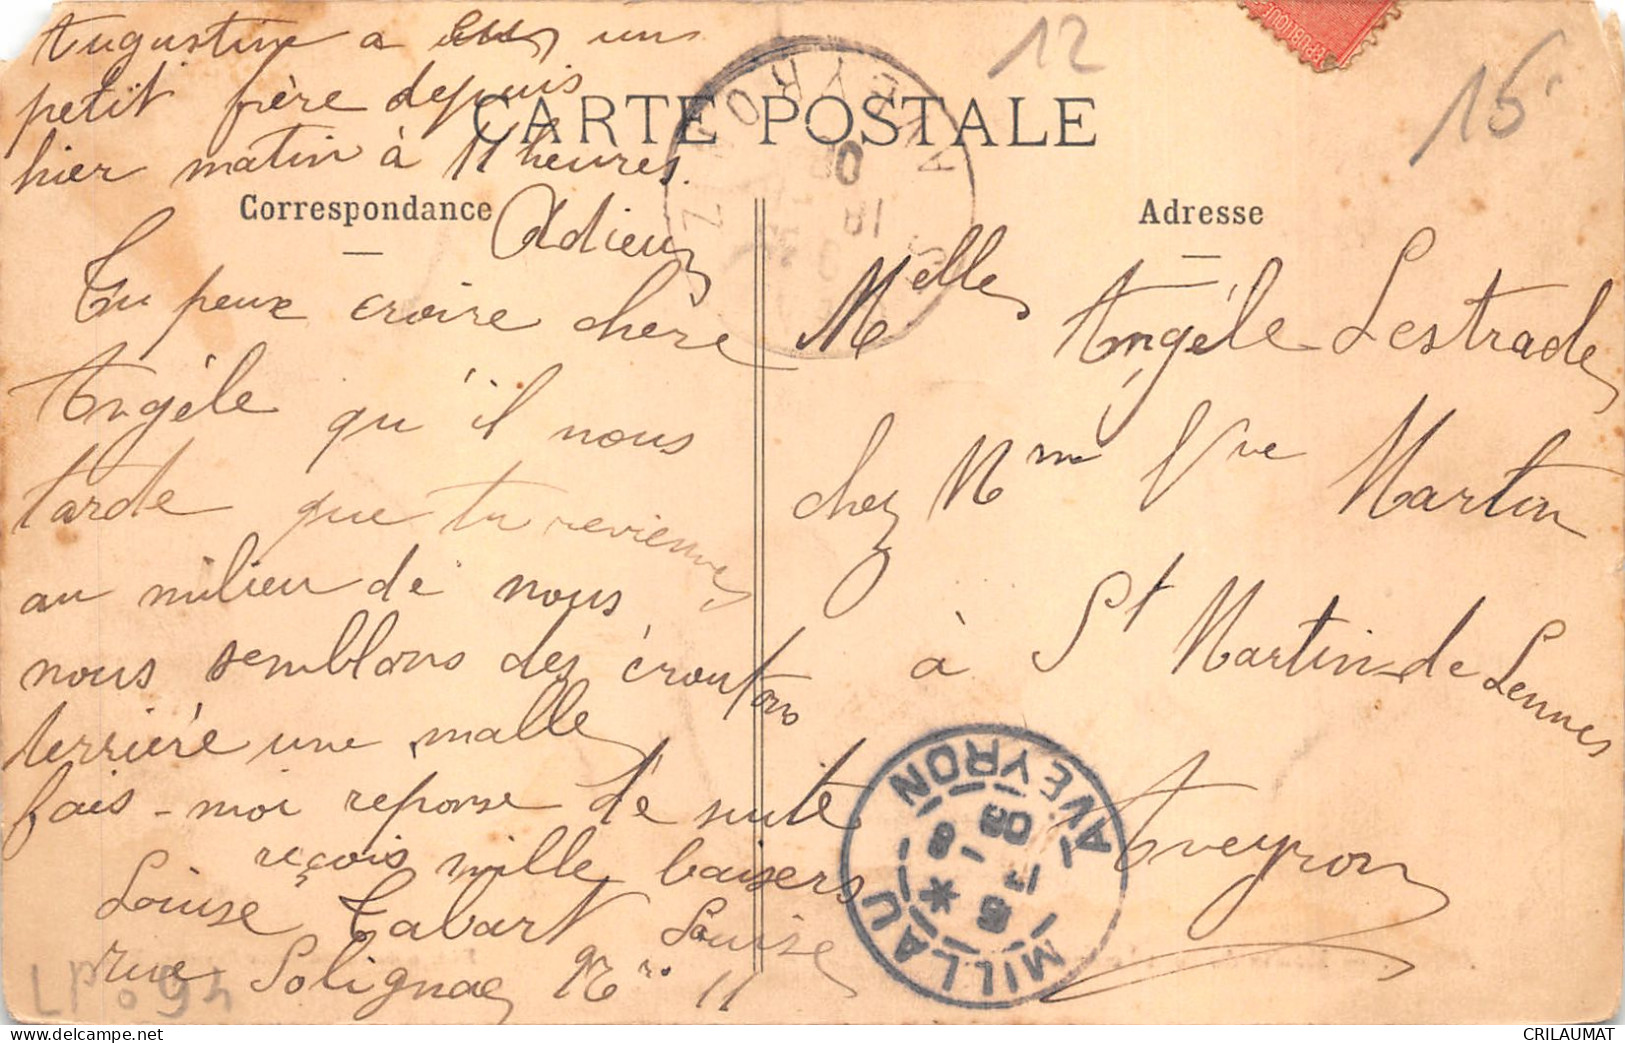 Augustine a eu un
petit frère depuis
hier matin à 11 heures.
Adieu
CARTE POSTALE
Correspondance
Tu peux croire chère
Angéle qu'il nous
tarde que tu reviennes
au milieu de nous
nous semblons des croutons
terriére une malle
fais-moi reponse de suite
reçois mille baisers
Louise
Louise Cabart
rue Solignac Nr. 11
LP 094
12
15
REPUBLIQUE
AVEYRON
Adresse
Melle Angéle Lestrade
chez Mme Vve Martin
à St Martin-de Lennes
Aveyron
MILLAU AVEYRON
5 * 17 -8 09
CRILAUMAT